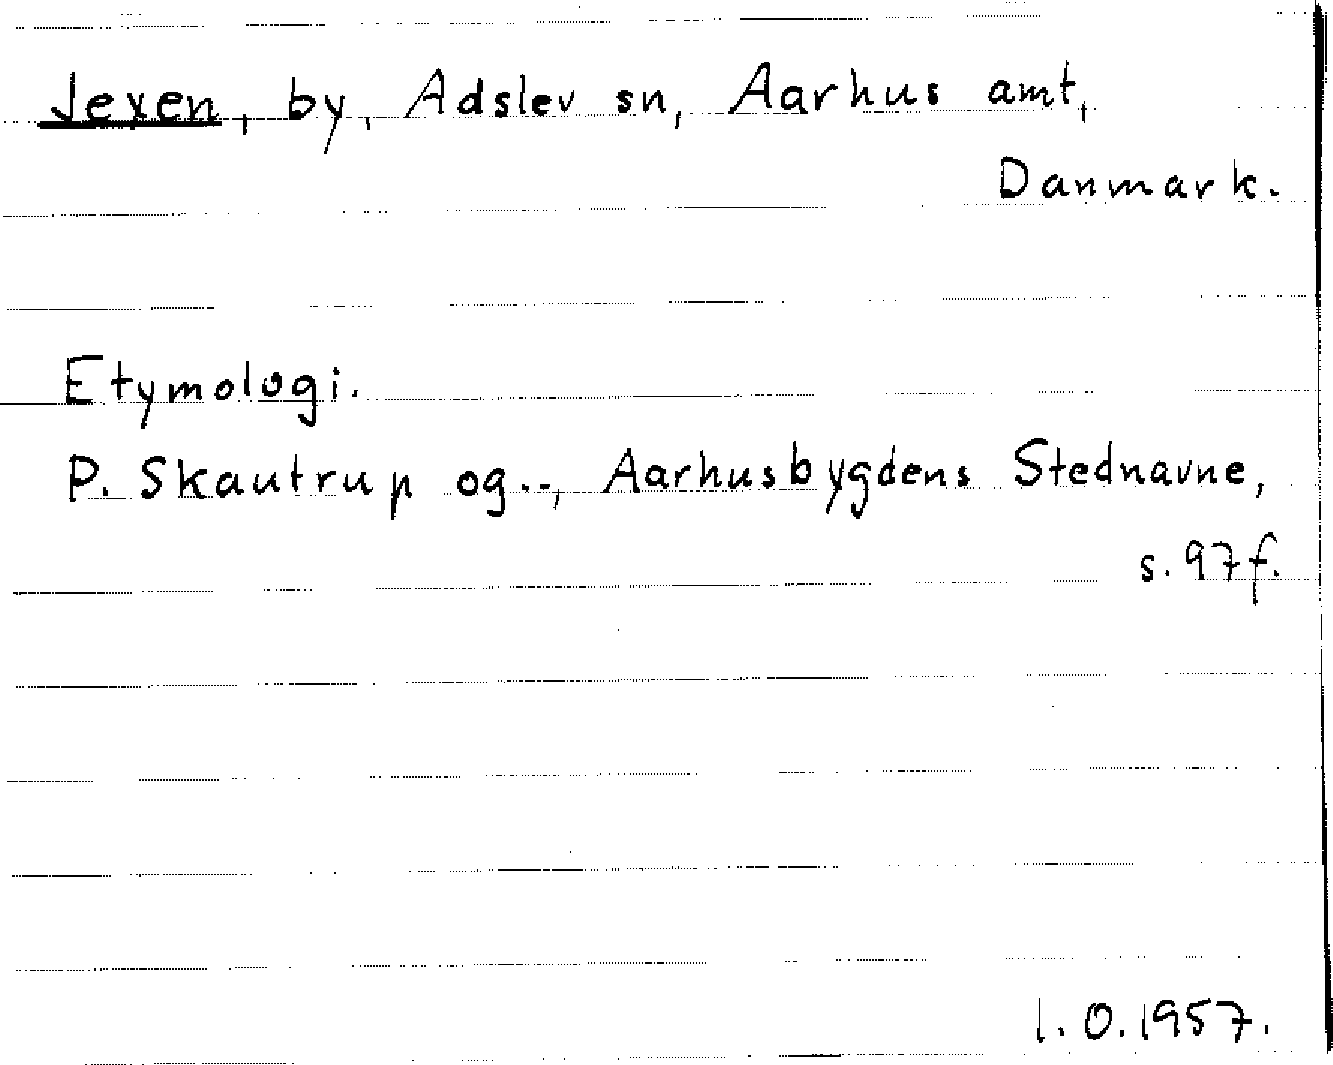 Jexen, by, Adslev sn, Aarhus amt,
Danmark.
Etymologi.
P. Skautrup og.., Aarhusbygdens Stednavne,
s. 97 f.
1.0.1957.